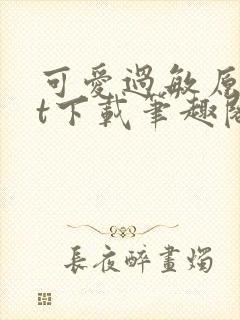 可愛過敏原
t下載筆趣閣
長夜醉畫燭